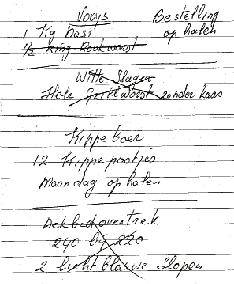 Voois Bestelling
1 Kg Bass op halen
1/2 king Rookworst
Witte Slager
Grillworst zonder kaas
Kippe boer
12 Kippepootjes
Maandag op halen
Dekbedovertrek
240 bij 220
2 licht blauwe slopen